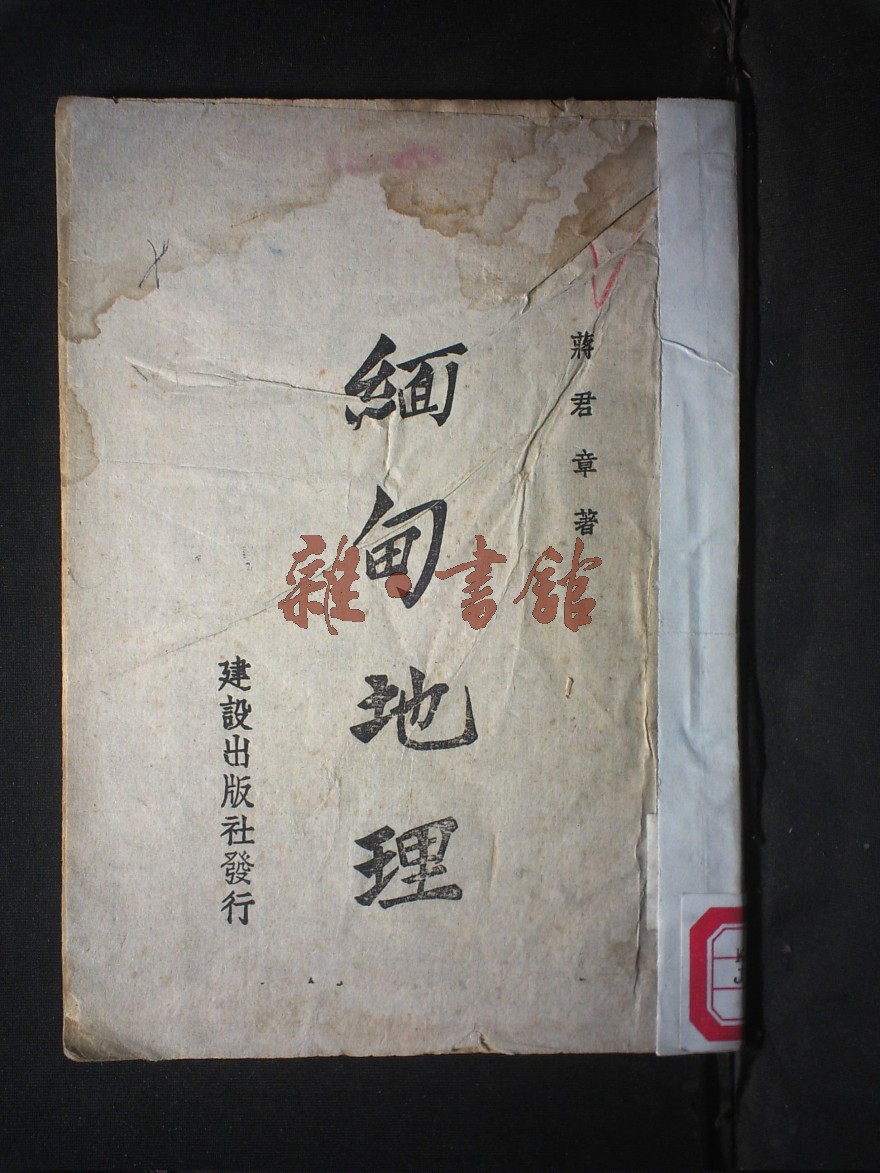 蔣君章著
緬甸地理
建設出版社發行
雜·書館